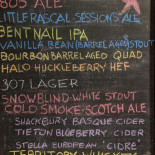 805 ALE
LITTLE RASCAL SESSIONS ALE
BENT NAIL IPA
VANILLA BEAN (BARREL AGED) STOUT
BOURBON BARREL AGED QUAD
HALO HUCKLEBERRY HEF
307 LAGER
SNOWBLIND WHITE STOUT
COLD SMOKE SCOTCH ALE
SHACKBURY BASQUE CIDER
TIETON BLUEBERRY CIDER
STELLA EUROPEAN CIDRE